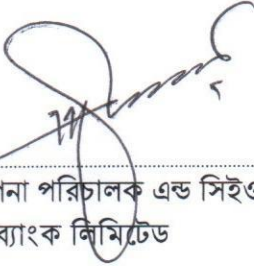 পনা পরিচালক এন্ড সিইও
ব্যাংক লিমিটেড